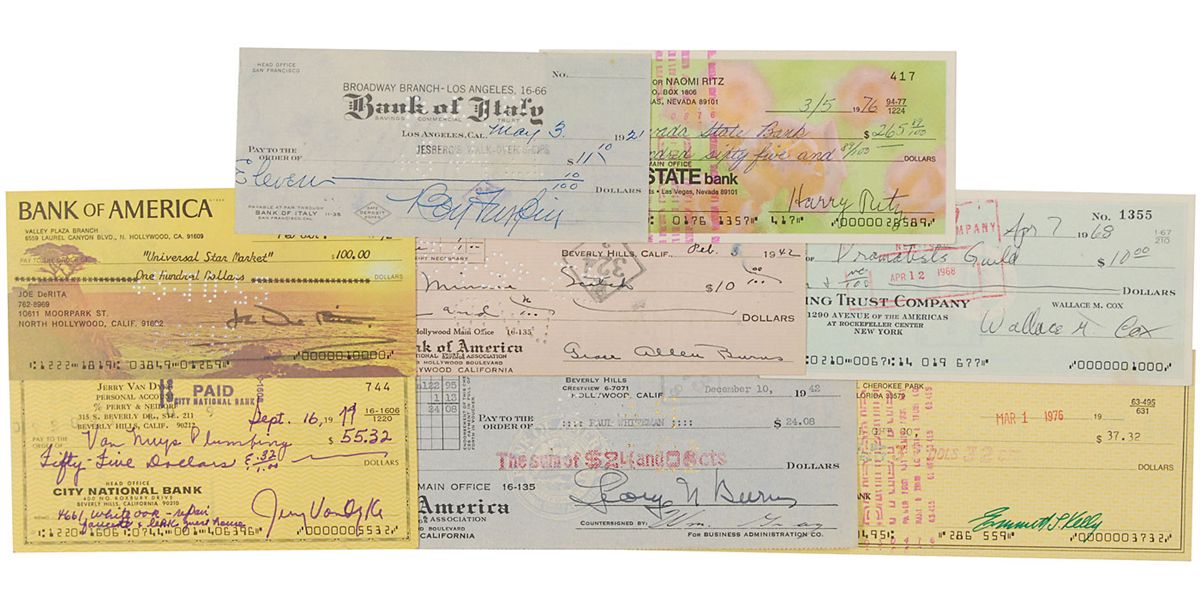 HEAD OFFICE
SAN FRANCISCO
No.
BROADWAY BRANCH - LOS ANGELES, 16-66
Bank of Italy
SAVINGS COMMERCIAL TRUST
LOS ANGELES, CAL. May 3 192
JESBERG'S WALK-OVER SHOPS
PAY TO THE
ORDER OF
$11 10
Eleven 10/100 DOLLARS
PAYABLE AT PAR THROUGH
BANK OF ITALY 11-35
SAN FRANCISCO, CAL.
SAFE
DEPOSIT
BOXES
OR NAOMI RITZ
O. BOX 1606
AS, NEVADA 89101
417
3/5 1976 94-77
1224
State Bank $265 89/100
sixty five and 89/100 DOLLARS
MAIN OFFICE
STATE bank
• Las Vegas, Nevada 89101
Harry Ritz
0176 1357 417 0000026589
BANK OF AMERICA
VALLEY PLAZA BRANCH
6559 LAUREL CANYON BLVD., N. HOLLYWOOD, CA. 91609
PAY TO THE ORDER OF "Universal Star Market" $100.00
One Hundred Dollars DOLLARS
JOE DeRITA
762-8969
10611 MOORPARK ST.
NORTH HOLLYWOOD, CALIF. 91602
Joe De Rita
1222 1819 03849 01269 0000010000
BEVERLY HILLS, CALIF. Feb. 3 1942
Minnie $10 00
and DOLLARS
Hollywood Main Office 16-135
nk of America
NATIONAL TRUST & SAVINGS ASSOCIATION
HOLLYWOOD BOULEVARD
HOLLYWOOD CALIFORNIA
Grace Allen Burns
321
No. 1355
COMPANY
Apr 7 1968 1-67
210
OF Dramatists Guild $10 00
APR 12 1968
DOLLARS
ING TRUST COMPANY
1290 AVENUE OF THE AMERICAS
AT ROCKEFELLER CENTER
NEW YORK
WALLACE M. COX
Wallace M. Cox
0210 0067 14 019 677 0000001000
JERRY VAN DY
PERSONAL ACCO
% PERRY & NEIDORF
315 S. BEVERLY DR., STE. 211
BEVERLY HILLS, CALIF. 90212
PAID
CITY NATIONAL BANK
744
Sept. 16, 1979 16-1606
1220
PAY TO THE
ORDER OF
Van Nuys Plumbing $55.32
Fifty-Five Dollars & .32/1.00 DOLLARS
HEAD OFFICE
CITY NATIONAL BANK
400 NO. ROXBURY DRIVE
BEVERLY HILLS, CALIFORNIA 90210
4661 Whiteoak - repair
faucets & leak guest house
Jerry Van Dyke
1220 1606 0744 001 406396 0000005532
BEVERLY HILLS
CRESTVIEW 6-7071
HOLLYWOOD, CALIF. December 10, 1942
122 95
1 13
24 08
PAY TO THE
ORDER OF PAUL WHITEMAN $24.08
The sum of $24 and 08 cts DOLLARS
MAIN OFFICE 16-135
America
ASSOCIATION
BOULEVARD
CALIFORNIA
George N Burns
COUNTERSIGNED BY: Wm. Gray
FOR BUSINESS ADMINISTRATION CO.
CHEROKEE PARK
LORIDA 33579
MAR 1 1976 19 63-495
631
$37.32
DOLS 32 CTS
DOLLARS
Emmett L Kelly
0495 286 559 0000003732